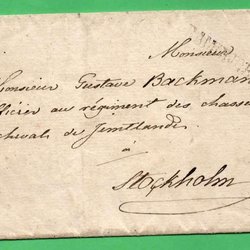 Monsieur
onsieur Gustave Backman
fficier au régiment des chasse
cheval de Jemtland
à
Stockholm